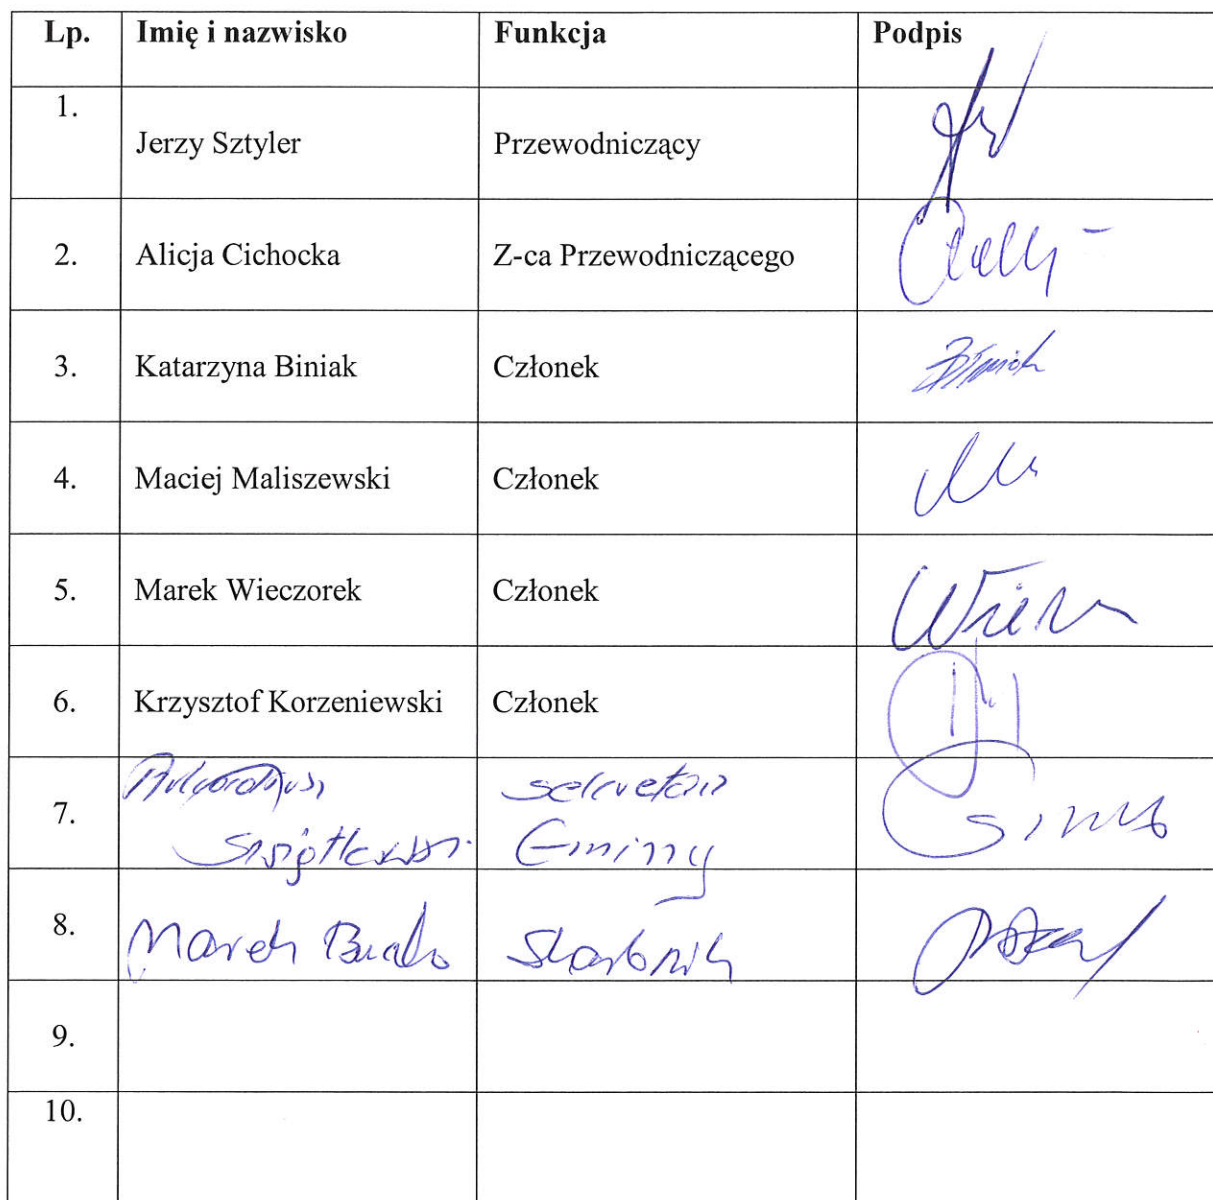 Lp. Imię i nazwisko Funkcja Podpis
1. Jerzy Sztyler Przewodniczący
2. Alicja Cichocka Z-ca Przewodniczącego
3. Katarzyna Biniak Członek
4. Maciej Maliszewski Członek
5. Marek Wieczorek Członek
6. Krzysztof Korzeniewski Członek
7. sekretarz
Gminy
8. Marek Skarbnik
9.
10.